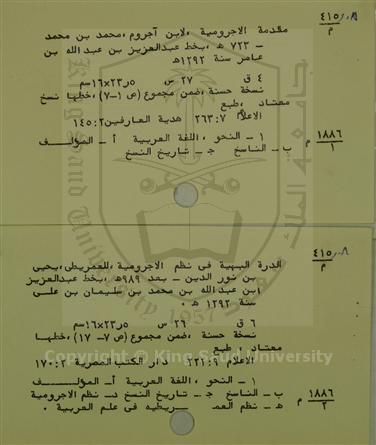 ٤١٥٫٠٨
م
مقدمة الاجرومية ،لابن آجروم ،محمد بن محمد
ـ ٧٢٣ هـ ،بخط عبدالعزيز بن عبد الله بن
عامر سنة ١٢٩٢هـ
٤ ق ٢٧ س ٢٣٫٥×١٦سم
نسخة حسنة ،ضمن مجموع (ص ١-٧) ،خطها نسخ
معتاد ،طبع
الاعلام ٧: ٢٦٣ هدية العارفين ٢: ١٤٥
١ ـ النحو ،اللغة العربية أ ـ المؤلف
ب ـ الناسخ جـ ـ تاريخ النسخ
١٨٨٦ م
١
٤١٥٫٠٨
م
الدرة البهية فى نظم الاجرومية ،للعمريطى ،يحيى
بن نور الدين ـ بعد ٩٨٩هـ ،بخط عبدالعزيز
ابن عبد الله بن محمد بن سليمان بن على
سنة ١٢٩٢ هـ ٠
٦ ق ٢٦ س ٢٣٫٥×١٦سم
نسخة حسنة ،ضمن مجموع (ص ٧- ١٧) ،خطها
معتاد ، طبع
الاعلام ٩: ٢٢١ دار الكتب المصرية ٢: ١٧٠
١ ـ النحو ،اللغة العربية أ ـ المؤلف
ب ـ الناسخ جـ ـ تاريخ النسخ د ـ نظم الاجرومية
هـ ـ نظم العمريطيه فى علم العربية ٠
١٨٨٦ م
٢
Copyright © King Saud University
King Saud University
1957